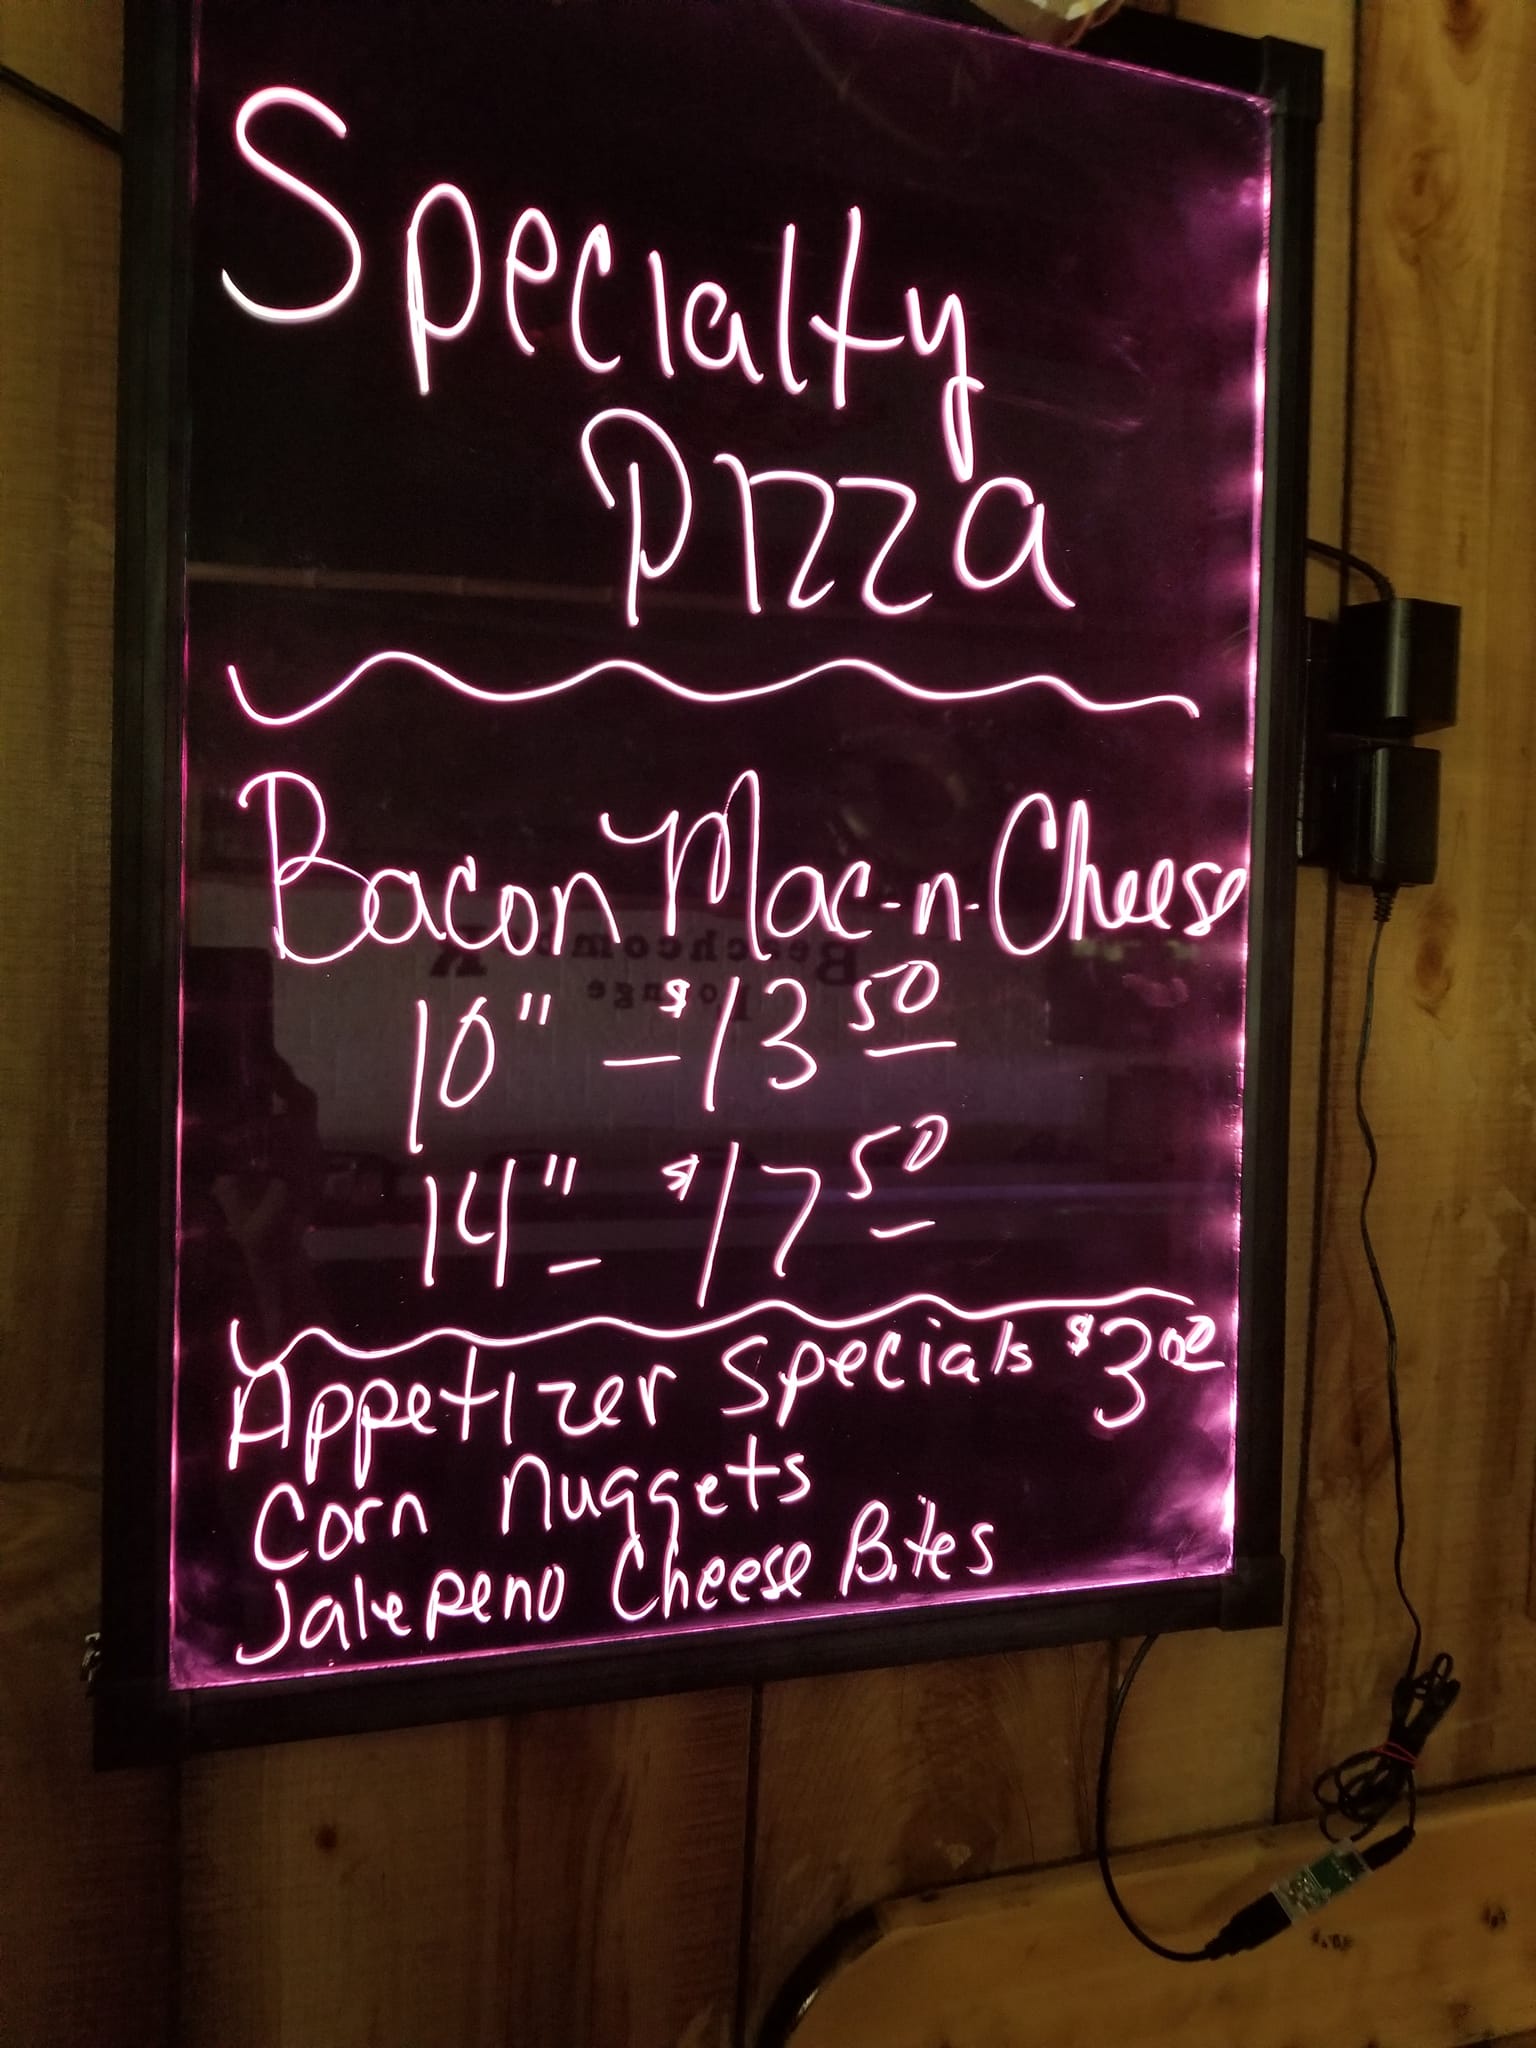 Specialty
Pizza
Bacon Mac-n-Cheese
10" - $13 50
14" - $17 50
Appetizer Specials $3 00
Corn Nuggets
Jalepeno Cheese Bites
Lounge